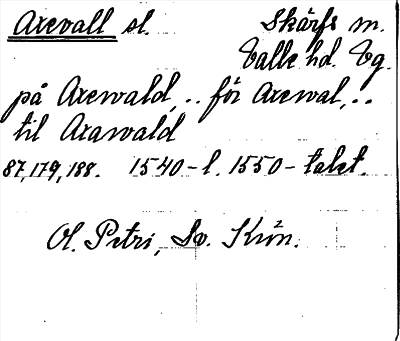 Axevall sl. Skärfs m.
Valle hd. Vg.
på Axewald,.. för Axewal,..
til Axawald
87,179,188. 1540- l. 1550-talet.
Ol. Petri, Sv. Krön.